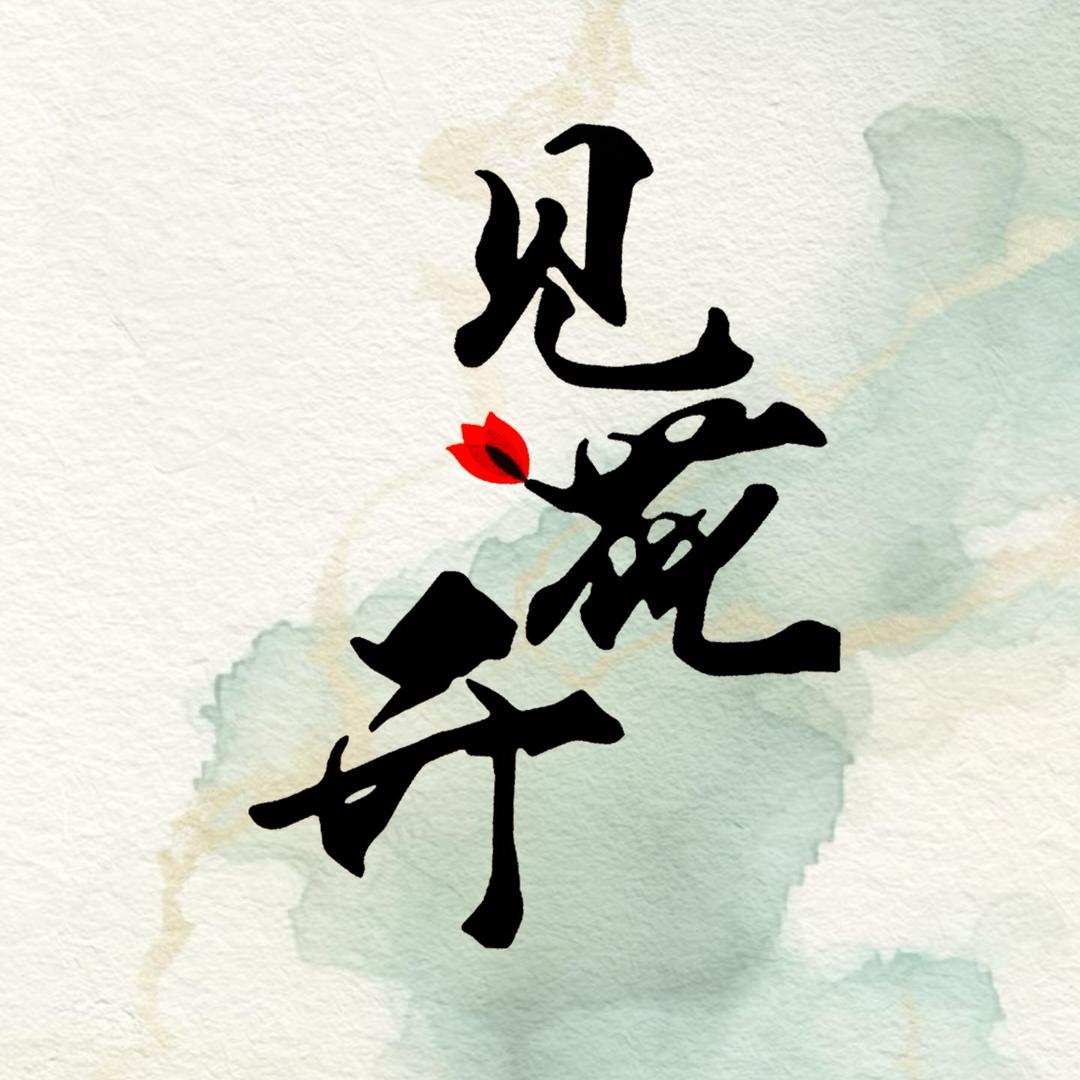 见花开